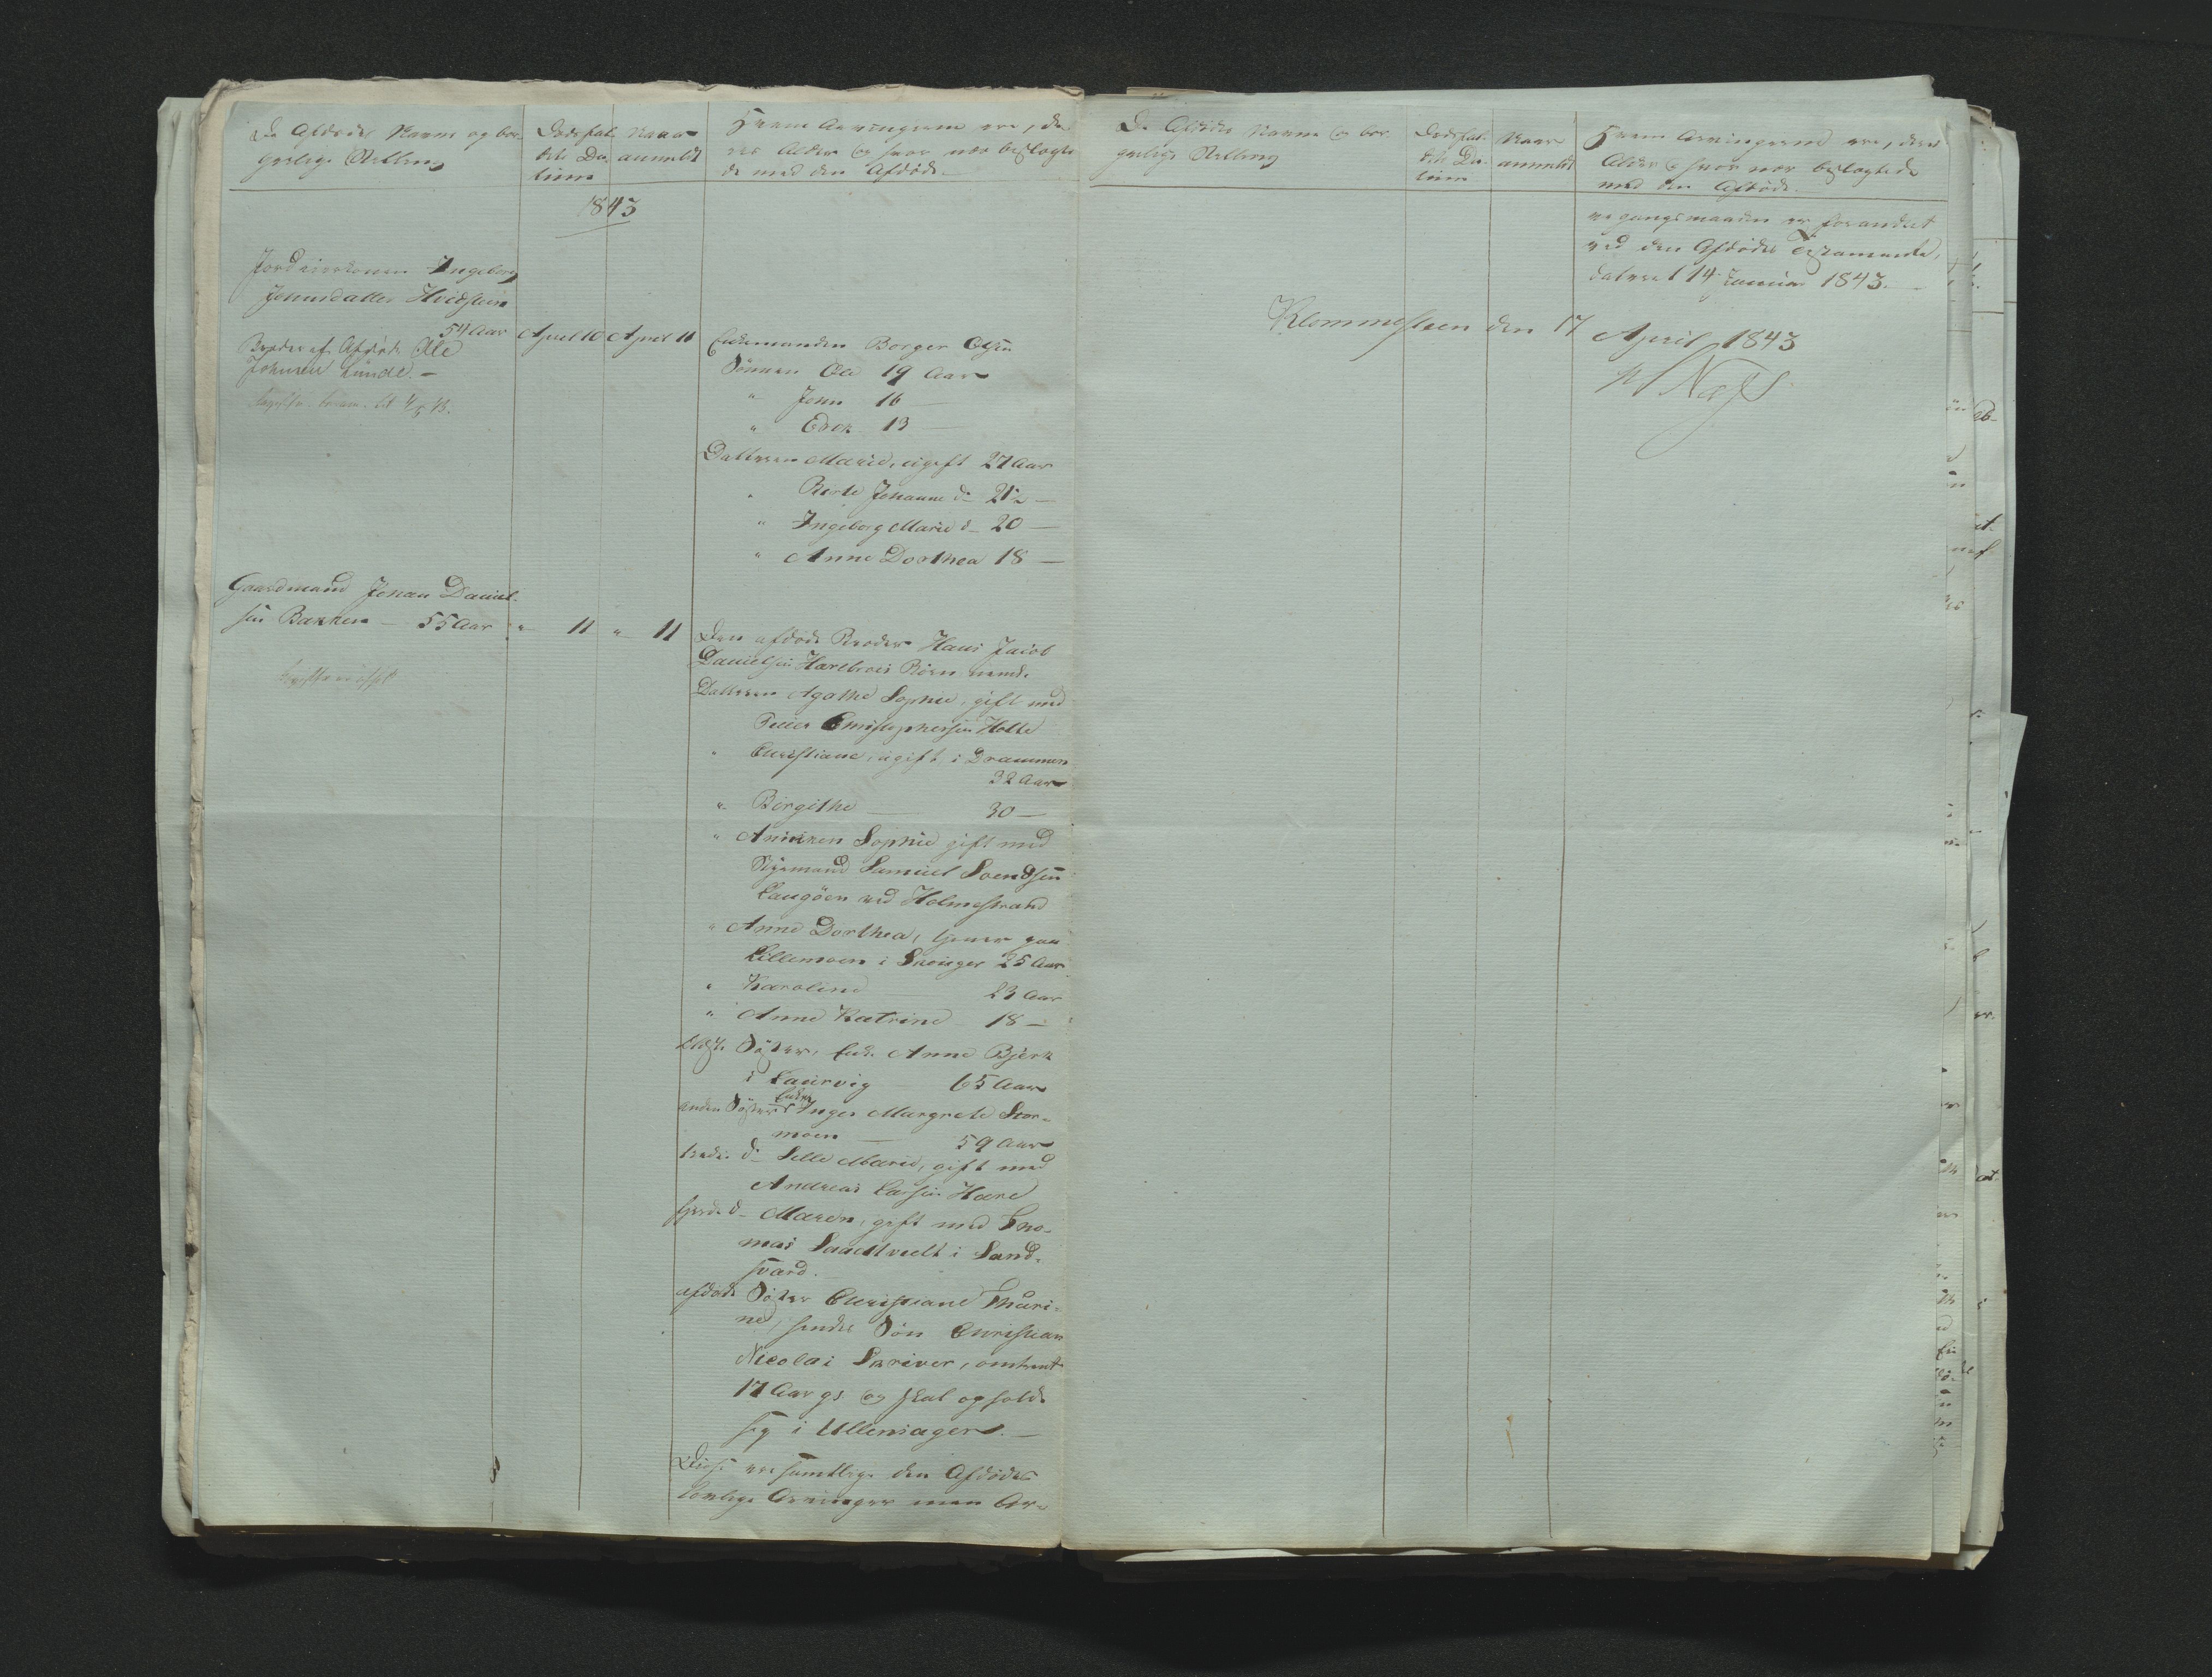 De Afdødes Navne og bor-
gerlige Stilling
Dødsfal-
dets Da-
tum
Naar
anmeldt
Hvem Arvingerne ere, de-
res Alder og hvor nær beslægte-
de med den Afdøde.
1843
Jordeierkonen Ingeborg
Johnsdatter Hvidsteen
54 Aar
April 10
April 11
Broder af Afdøde Ole
Johnsen Lunde. -
Enkemanden Borger Olsen
Sønnen Ole 19 Aar
" John 16 -
" Edor 13 -
Datteren Marie, ugift 27 Aar
" Berte Johanne do 21½ -
" Ingeborg Marie do 20 -
" Anne Dorthea 18 -
Gaardmand Johan Daniel-
sen Bakken - 55 Aar
" 11 " 11
Den afdøde Broder Hans Jacob
Danielsen Børn neml.
Datteren Agathe Sophie, gift med
Peder Christophersen Holte
" Christiane, ugift, i Drammen
32 Aar
" Birgithe 30 -
" Anniken Sophie gift med
Styrmand Samuel Svendsen
Langøen ved Holmestrand
" Anne Dorthea, tjener paa
Lillemoen i Skouger 25 Aar
" Karoline 23 Aar
" Anne Katrine 18 -
Ældste Søster, Enke Anne Bjerk
i Laurvig 65 Aar
anden Søster Enke Inger Margrete Stor-
moen 59 Aar
tredie do Sille Marie, gift med
Andreas Larsen Hære
fjerde do Maren, gift med Tho-
mas i Sand-
sværd.
afdøde Søster Christiane Thuri-
ne, hendes Søn Christian
Nicolai Skriver, omtrent
17 Aar gl. og skal opholde
sig i Ullensager. -
Disse ere samtlige den Afdødes
lovlige Arvinger men Ar-
De Afdødes Navne og bor-
gerlige Stilling
Dødsfal-
dets Da-
tum
Naar
anmeldt
Hvem Arvingerne ere, deres
Alder og hvor nær beslægtede
med den Afdøde.
vegangsmaaden er forandret
ved den Afdødes Testamente,
dateret 14 Januar 1843. -
Klommesteen den 17 April 1843